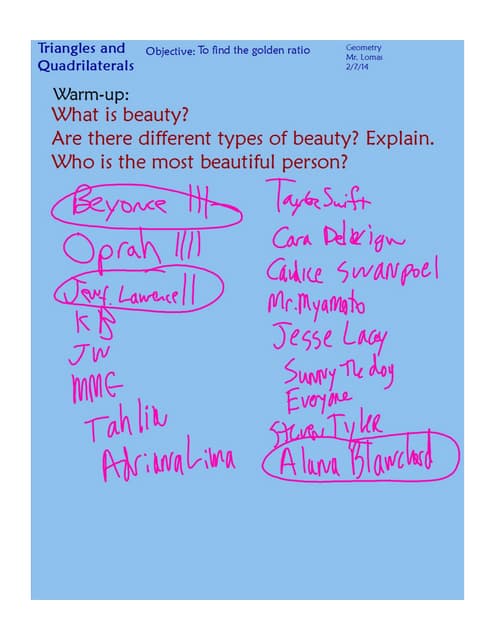 Triangles and Quadrilaterals
Objective: To find the golden ratio
Geometry
Mr. Lomas
2/7/14
Warm-up:
What is beauty?
Are there different types of beauty? Explain.
Who is the most beautiful person?
Beyonce |||
Oprah ||||
Jenf. Lawrence ||
KB
JW
MME
Tahlia
Adriana Lima
Taylor Swift
Cara
Candice Swanpoel
Mr. Myamoto
Jesse Lacey
Sunny The dog
Everyone
Steven Tyler
Alana Blanchard